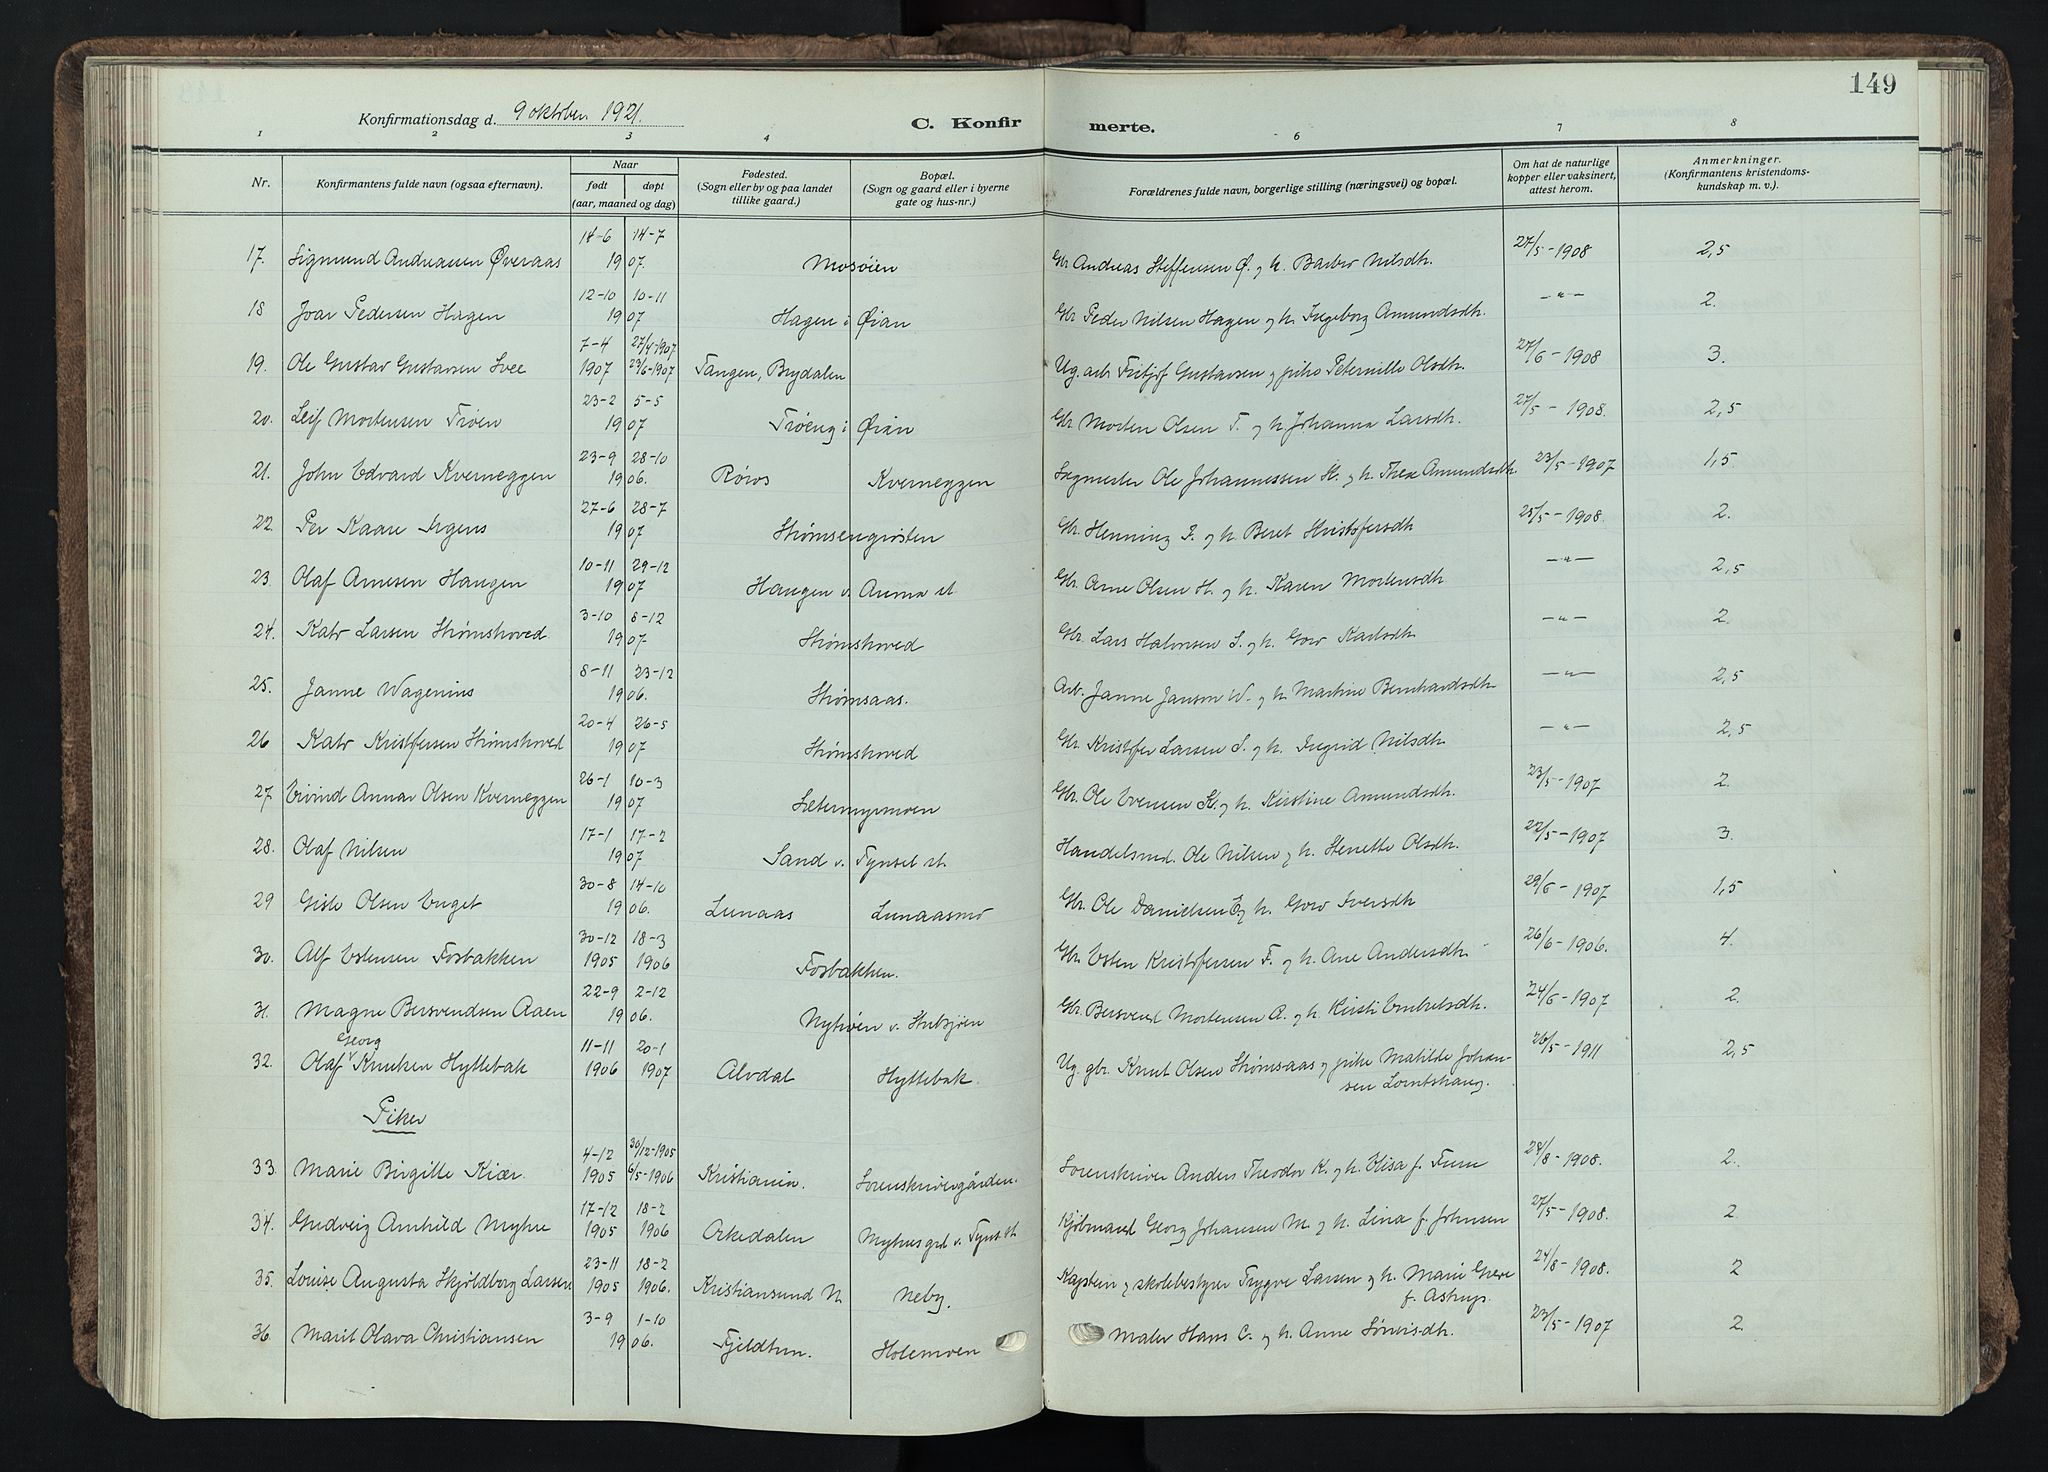 149
Konfirmationsdag d. 9 oktober 1921.
C. Konfirmerte.
1 2 3 4 5 6 7 8
Nr. Konfirmantens fulde navn (ogsaa efternavn). Naar født døpt (aar, maaned og dag) Fødested. (Sogn eller by og paa landet tillike gaard.) Bopæl. (Sogn og gaard eller i byerne gate og hus-nr.) Forældrenes fulde navn, borgerlige stilling (næringsvei) og bopæl. Om hat de naturlige kopper eller vaksinert, attest herom. Anmerkninger. (Konfirmantens kristendomskundskap m. v.)
17. Sigmund Andreassen Øveraas 14-6 14-7 1907. Mosøien Gbr. Andreas Steffensen Ø. og h. Barbro Nilsdtr. 27/5-1908 2,5
18 Joar Pedersen Hagen 12-10 10-11 1907 Hagen i Øian Gbr. Peder Nilsen Hagen og h. Ingeborg Amundsdtr. -"- 2.
19. Ole Gustav Gustavsen Svee 7-4 1907 27/4-1907 23/6-1907 Tangen, Brydalen Ug. arb. Fritjof Gustavsen og pike Peternille Olsdtr. 27/6-1908 3.
20. Leif Mortensen Trøen 23-2 5-5 1907 Trøeng i Øian Gbr. Morten Olsen T. og h. Johanna Larsdtr. 27/5-1908. 2,5
21. John Edvard Kverneggen 23-9 28-10 1906. Røros Kverneggen Sagmester Ole Johannessen K. og h. Therese Amundsdtr. 23/5-1907 1,5.
22. Per Kaare Irgens 27-6 28-7 1907 Strømsengrosten Gbr. Henning I. og h. Beret Kristofersdtr. 25/5-1908. 2.
23 Olaf Arnesen Haugen 10-11 29-12 1907 Haugen v. Auma st. Gbr. Arne Olsen H. og h. Karen Mortensdtr. -"- 2,5
24. Kato Larsen Strømshoved 3-10 8-12 1907 Strømshoved Gbr. Lars Halvorsen S. og h. Goro Karlsdtr. -"- 2.
25. Janne Wagenius 8-11 23-12 1906. Strømsaas. Arb. Janne Janson W. og h. Martine Bernhardsdtr. -"- 2,5
26 Kato Kristofersen Strømshoved 20-4 26-5 1907 Strømshoved Gbr. Kristofer Larsen S. og h. Ingrid Nilsdtr. -"- 2,5
27 Eivind Annar Olsen Kverneggen 26-1 10-3 1907 Sætermyrmoen Gbr. Ole Evensen K. og h. Kirstine Amundsdtr. 23/5-1907 2.
28. Olaf Nilsen 17-1 17-2 1907 Sand v. Tynset st. Handelsmd. Ole Nilsen og h. Henette Olsdtr. 22/5-1907 3.
29 Gisle Olsen Enget 30-8 14-10 1906. Lunaas Lunaasmo Gbr. Ole Danielsen E. og h. Goro Iversdtr. 29/6-1907 1,5
30. Alf Estensen Fosbakken 30-12 1905 18-3 1906 Fosbakken. Gbr. Esten Kristofersen F. og h. Ane Andersdtr. 26/6-1906. 4.
31. Magne Bersvendsen Aaen 22-9 2-12 1906. Nytrøen v. Stubsjøen Gbr. Bersvend Mortensen A. og h. Kirsti Embretsdtr. 24/6-1907 2.
32. Olaf Georg Knutsen Hyttebak 11-11 1906 20-1 1907 Alvdal Hyttebak. Ug. gbr. Knut Olsen Strømsaas og pike Matilde Johansen Lomtshaug. 26/5-1911 2,5
Piker
33. Marie Birgitte Kiær. 4-12 1905 30/12-1905 6/5-1906 Kristiania. Sorenskrivergården. Sorenskriver Anders Theodor K. og h. Elisa f. Furu 24/8-1908. 2.
34. Gudveig Arnhild Myhre 17-12 1905 18-2 1906 Orkedalen Myhresgrd. v. Tynset st. Kjøbmand Georg Johansen M. og h. Lina f. Johnsen 27/5-1908. 2
35. Louise Augusta Skjoldborg Larsen 23-11 1905 18-2 1906. Kristiansund N. Neby. Kaptein og skolebestyrer Trygve Larsen og h. Marie Greve f. Astrup. 24/8-1908. 2
36. Marit Olava Christiansen 3-9 1-10 1906. Fjeldtun. Holemoen Maler Hans C. og h. Anne Simisdtr. 23/5-1907 2.